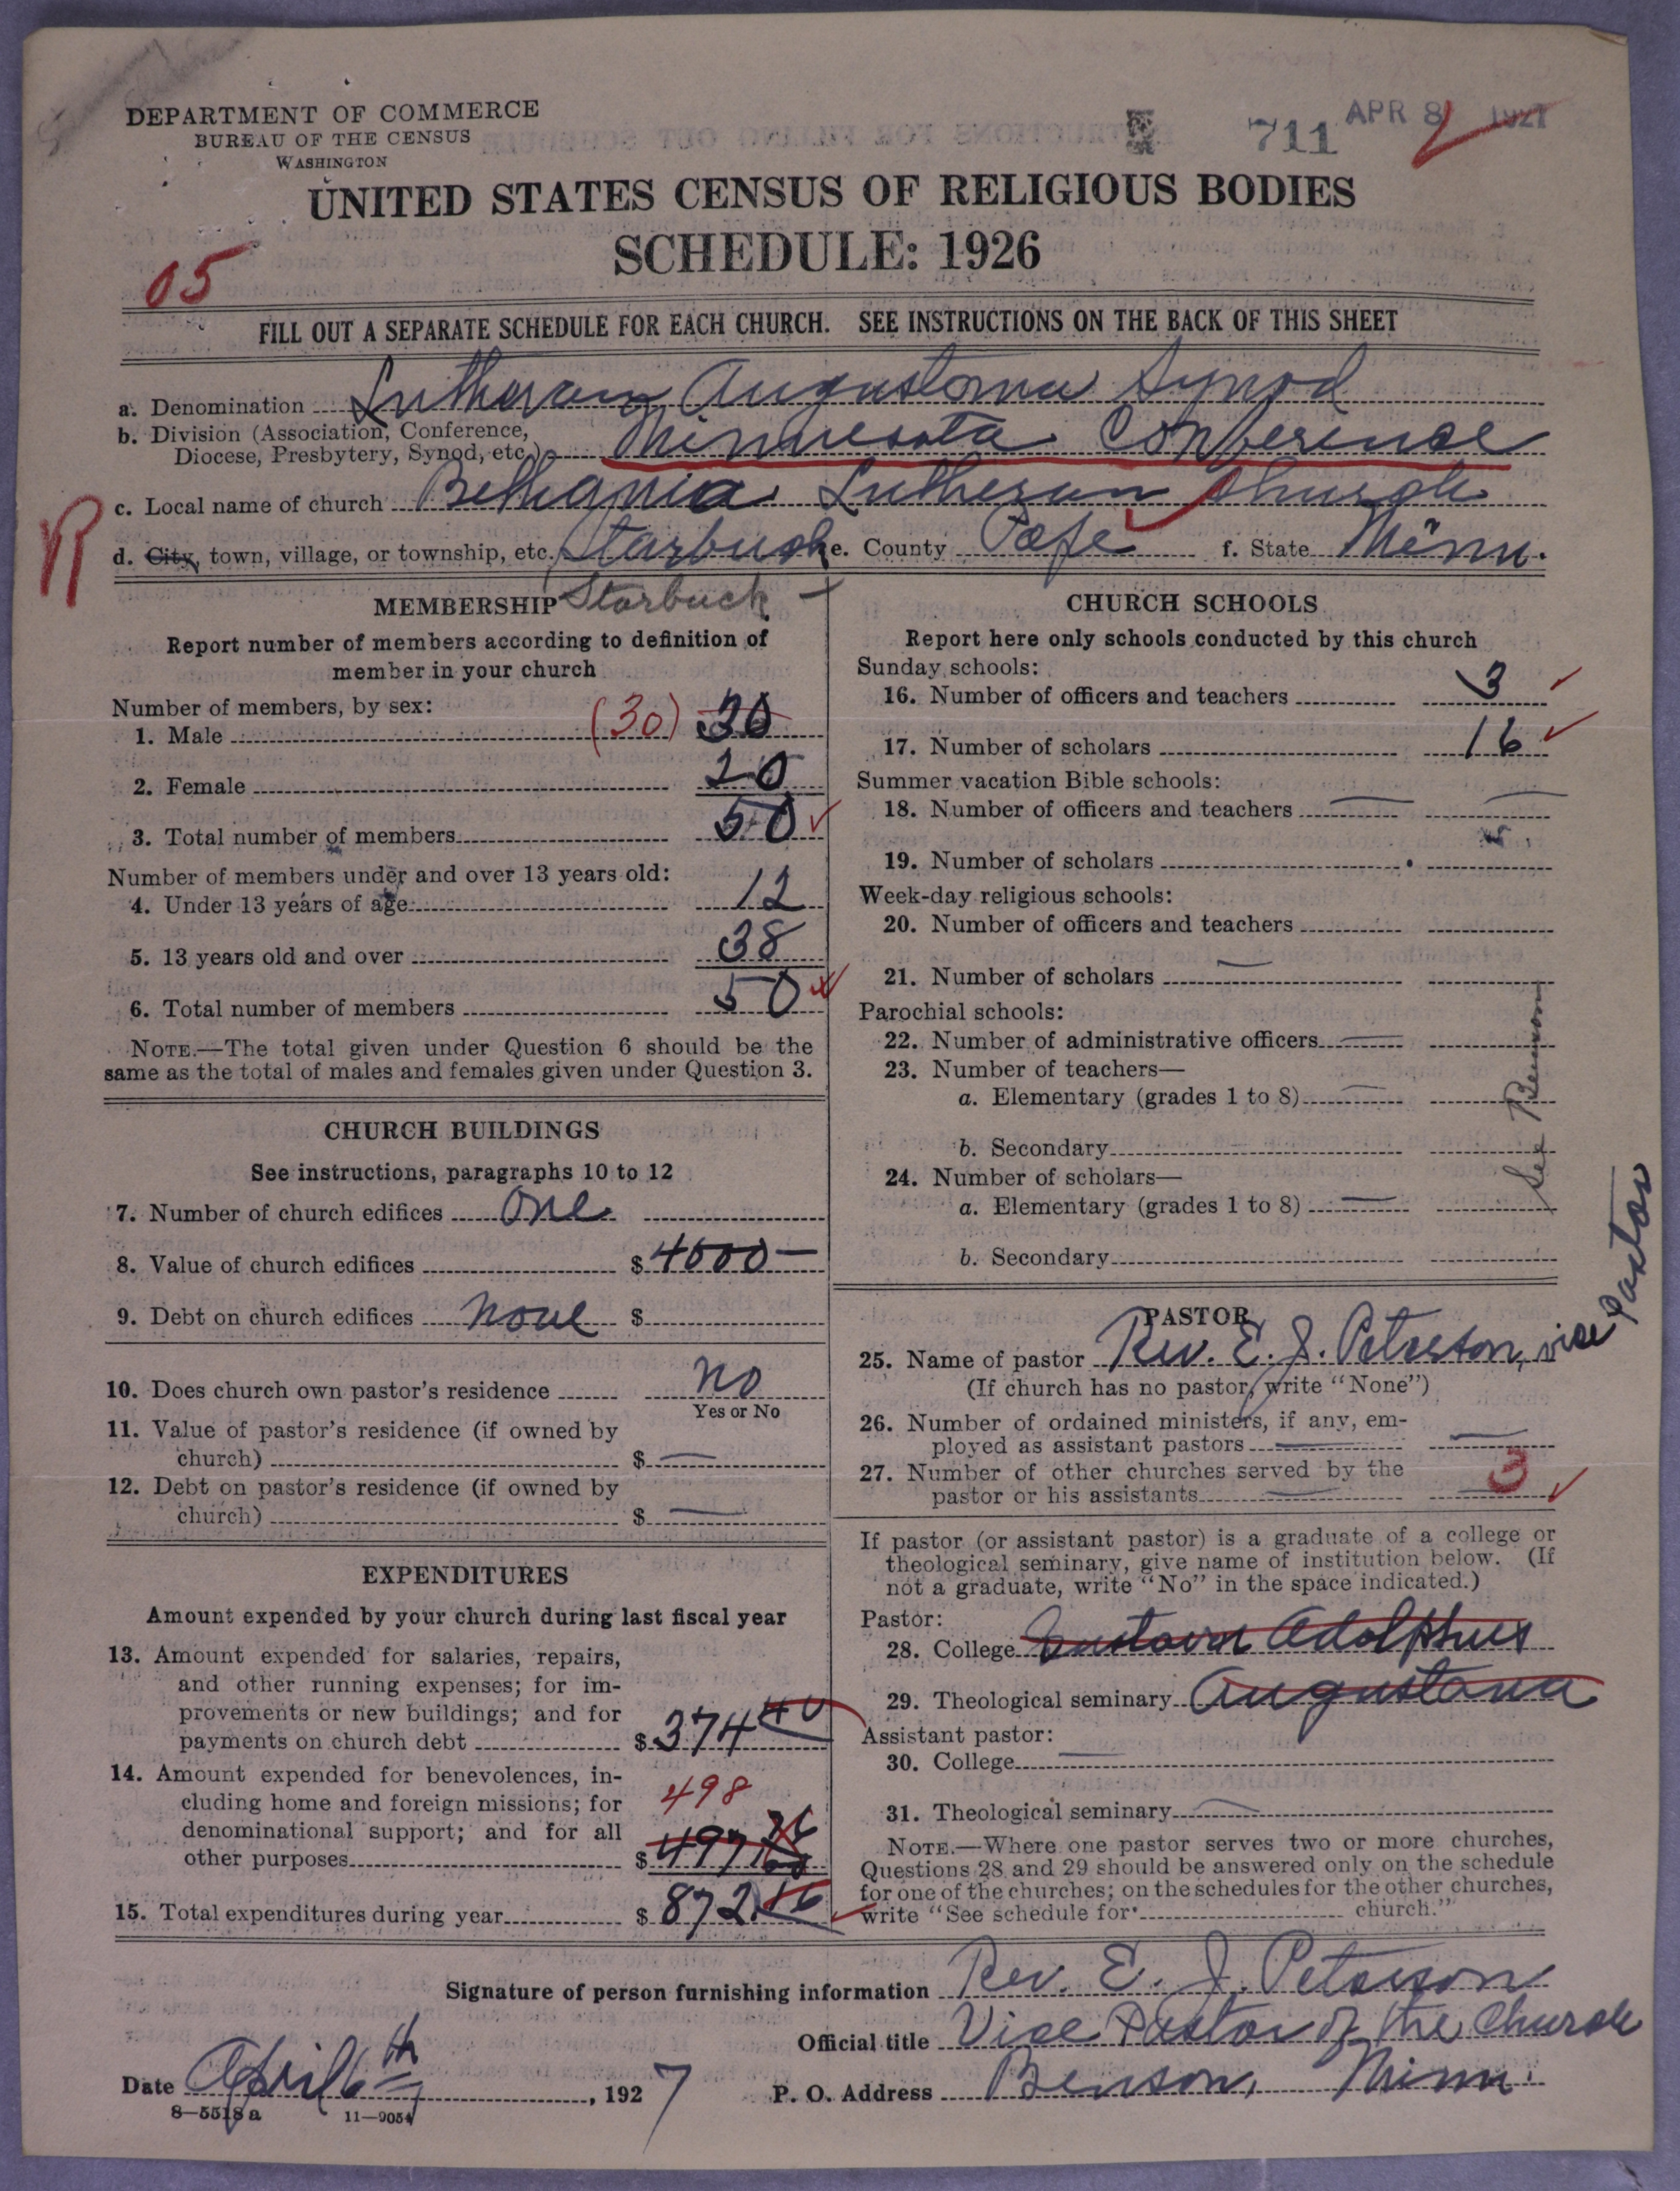 DEPARTMENT OF COMMERCE
BUREAU OF THE CENSUS
WASHINGTON
711
APR 8 1927
UNITED STATES CENSUS OF RELIGIOUS BODIES
SCHEDULE: 1926
05
FILL OUT A SEPARATE SCHEDULE FOR EACH CHURCH. SEE INSTRUCTIONS ON THE BACK OF THIS SHEET
a. Denomination Lutheran Augustana Synod
b. Division (Association, Conference,
Diocese, Presbytery, Synod, etc.) Minnesota Conference
c. Local name of church Bethania Lutheran Church
R
d. City, town, village, or township, etc. Starbuck e. County Pope f. State Minn.
Starbuck
MEMBERSHIP
Report number of members according to definition of
member in your church
Number of members, by sex:
1. Male (30) 30
2. Female 20
3. Total number of members 50
Number of members under and over 13 years old:
4. Under 13 years of age 12
5. 13 years old and over 38
6. Total number of members 50
NOTE.—The total given under Question 6 should be the
same as the total of males and females given under Question 3.
CHURCH BUILDINGS
See instructions, paragraphs 10 to 12
7. Number of church edifices One
8. Value of church edifices $ 4000—
9. Debt on church edifices none $
10. Does church own pastor's residence No
Yes or No
11. Value of pastor's residence (if owned by
church) $ —
12. Debt on pastor's residence (if owned by
church) $ —
EXPENDITURES
Amount expended by your church during last fiscal year
13. Amount expended for salaries, repairs,
and other running expenses; for im-
provements or new buildings; and for
payments on church debt $ 374 40
14. Amount expended for benevolences, in-
cluding home and foreign missions; for
denominational support; and for all
other purposes $ 497 76
498
15. Total expenditures during year $ 872.16
CHURCH SCHOOLS
Report here only schools conducted by this church
Sunday schools:
16. Number of officers and teachers 3
17. Number of scholars 16
Summer vacation Bible schools:
18. Number of officers and teachers —
19. Number of scholars
Week-day religious schools:
20. Number of officers and teachers
21. Number of scholars —
Parochial schools:
22. Number of administrative officers —
23. Number of teachers—
a. Elementary (grades 1 to 8) —
b. Secondary
24. Number of scholars—
a. Elementary (grades 1 to 8) —
b. Secondary
See Benson
PASTOR
25. Name of pastor Rev. E. J. Peterson, vise Pastor
(If church has no pastor, write "None")
26. Number of ordained ministers, if any, em-
ployed as assistant pastors —
27. Number of other churches served by the
pastor or his assistants 3
If pastor (or assistant pastor) is a graduate of a college or
theological seminary, give name of institution below. (If
not a graduate, write "No" in the space indicated.)
Pastor:
28. College Gustavus Adolphus
29. Theological seminary Augustana
Assistant pastor:
30. College —
31. Theological seminary —
NOTE.—Where one pastor serves two or more churches,
Questions 28 and 29 should be answered only on the schedule
for one of the churches; on the schedules for the other churches,
write "See schedule for church."
Signature of person furnishing information Rev. E. J. Peterson
Official title Vise Pastor of the Church
Date April 6th, 1927 P. O. Address Benson, Minn.
8—5518 a 11—9054